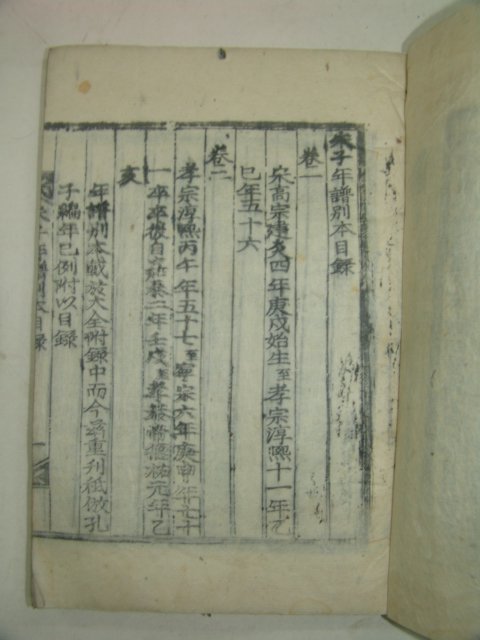 朱子年譜別本目錄
卷一
宋高宗建炎四年庚戌始生至孝宗淳熙十一年乙
巳年五十六
卷二
孝宗淳熙丙午年五十七至寧宗六年庚申年七十
一卒卒後自嘉泰二年壬戌至李蒙帝德祐元年乙
亥
年譜別本載於大全附錄中而今爲重刊秪倣孔
子編年已例附以目錄
朱子年譜別本目錄
一